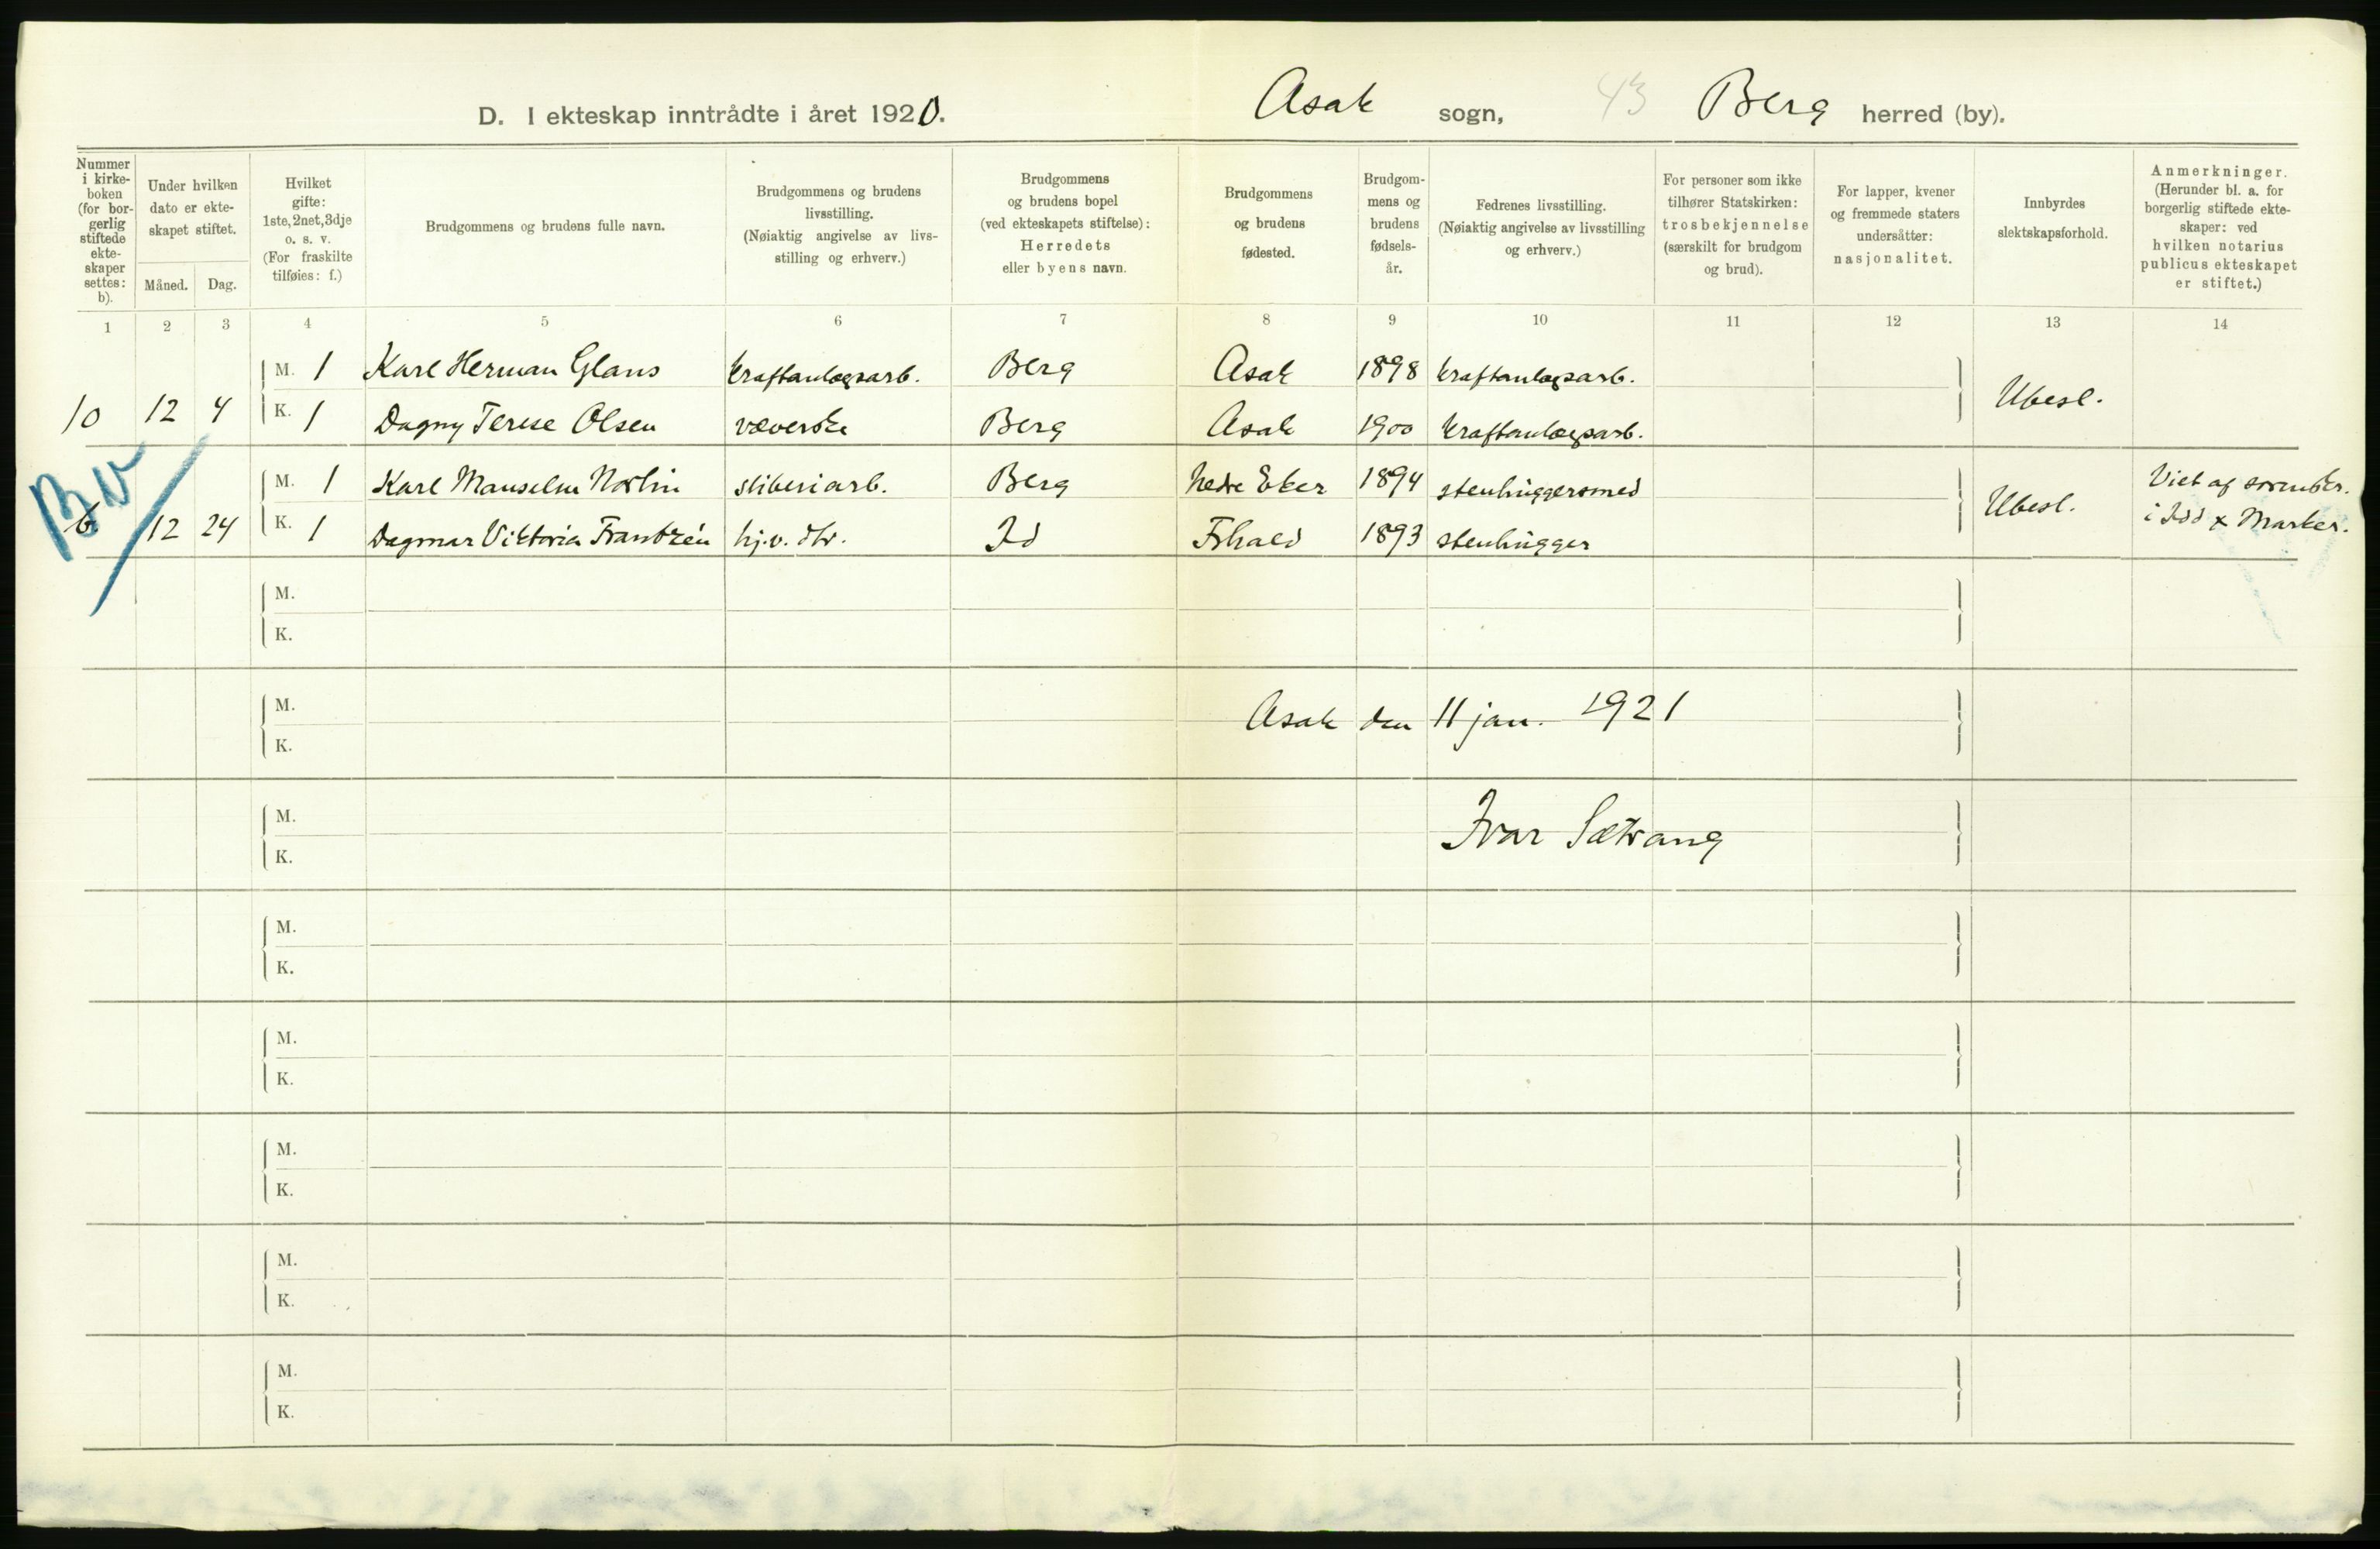 D. I ekteskap inntrådte i året 1920.
Asak sogn, 43 Berg herred (by).
Nummer i kirke-boken (for bor-gerlig stiftede ekte-skaper settes: b).
Under hvilken dato er ekte-skapet stiftet.
Måned. Dag.
Hvilket gifte: 1ste, 2net, 3dje o. s. v. (For fraskilte tilføies: f.)
Brudgommens og brudens fulle navn.
Brudgommens og brudens livsstilling. (Nøiaktig angivelse av livs-stilling og erhverv.)
Brudgommens og brudens bopel (ved ekteskapets stiftelse): Herredets eller byens navn.
Brudgommens og brudens fødested.
Brudgom-mens og brudens fødsels-år.
Fedrenes livsstilling. (Nøiaktig angivelse av livsstilling og erhverv.)
For personer som ikke tilhører Statskirken: trosbekjennelse (særskilt for brudgom og brud).
For lapper, kvener og fremmede staters undersåtter: nasjonalitet.
Innbyrdes slektskapsforhold.
Anmerkninger. (Herunder bl. a. for borgerlig stiftede ekte-skaper: ved hvilken notarius publicus ekteskapet er stiftet.)
1 2 3 4 5 6 7 8 9 10 11 12 13 14
M. 1 Karl Herman Glans kraftanlægsarb. Berg Asak 1898 kraftanlægsarb.
10 12 4 K. 1 Dagny Terese Olsen væverske Berg Asak 1900 kraftanlægsarb. Ubesl.
M. 1 Karl Manselm Norlin sliberiarb. Berg Nedre Eker 1894 stenhuggersmed Viet af sorenskr.
12 24 K. 1 Dagmar Viktoria Frantzén hj.v. dtr. Id Frhald 1893 stenhugger Ubesl. i Idd & Marker.
M.
K.
M.
Asak den 11 jan. 1921
K.
M.
Ivar Sætrang
K.
M.
K.
M.
K.
M.
K.
M.
K.
M.
K.